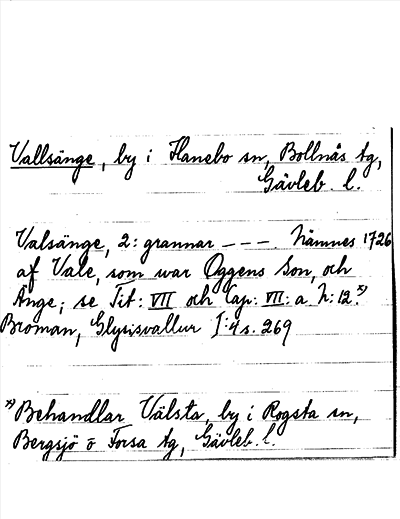 Vallsänge, by i Hanebo sn, Bollnäs tg,
Gävleb. l.
Valsänge, 2: grannar — — —. Nämnes 1726
af Vale, som war Oggens Son, och
Änge; se Tit: VII och Cap: VII: a N: 12.x)
Broman, Glysisvallur I:4 s. 269
x) Behandlar Välsta, by i Rogsta sn,
Bergsjö o Forsa tg, Gävleb. l.